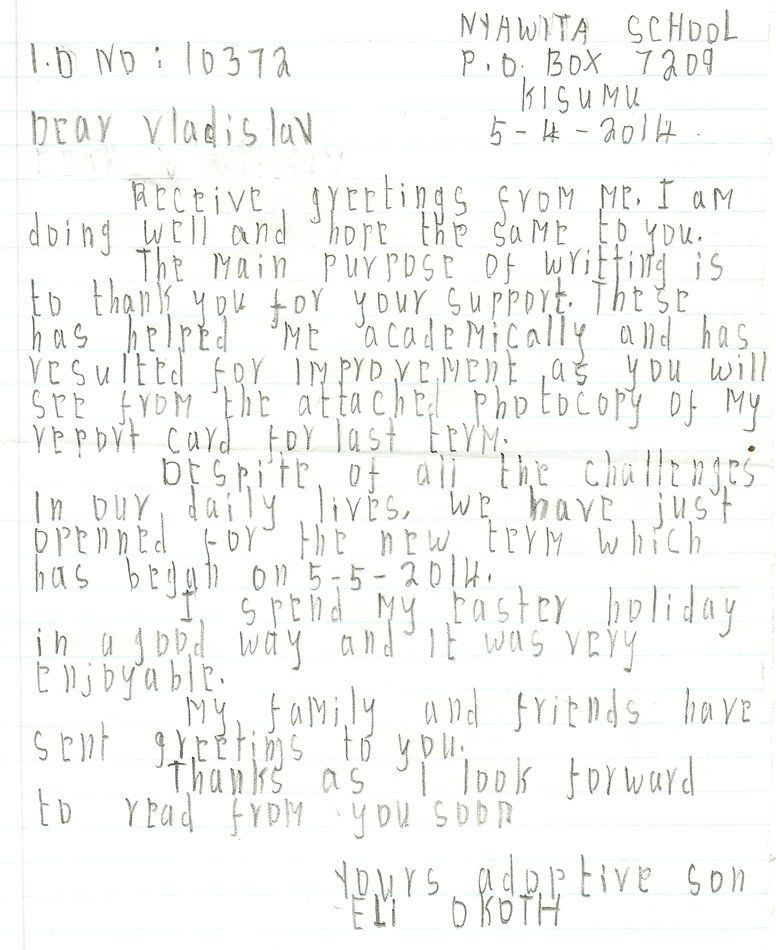 NYAWITA SCHOOL
I.D NO: 10372
P.O. BOX 7209
KISUMU
Dear Vladislav
5-4-2014.
Receive greetings from me. I am
doing well and hope the same to you.
The main purpose of writting is
to thank you for your support. These
has helped me academically and has
resulted for improvement as you will
see from the attached photocopy of my
report card for last term.
Despite of all the challenges
in our daily lives, we have just
openned for the new term which
has began on 5-5-2014.
I spend my easter holiday
in a good way and it was very
enjoyable.
My family and friends have
sent greetims to you.
Thanks as I look forward
to read from you soon
Yours adoptive son
ELI OKOTH